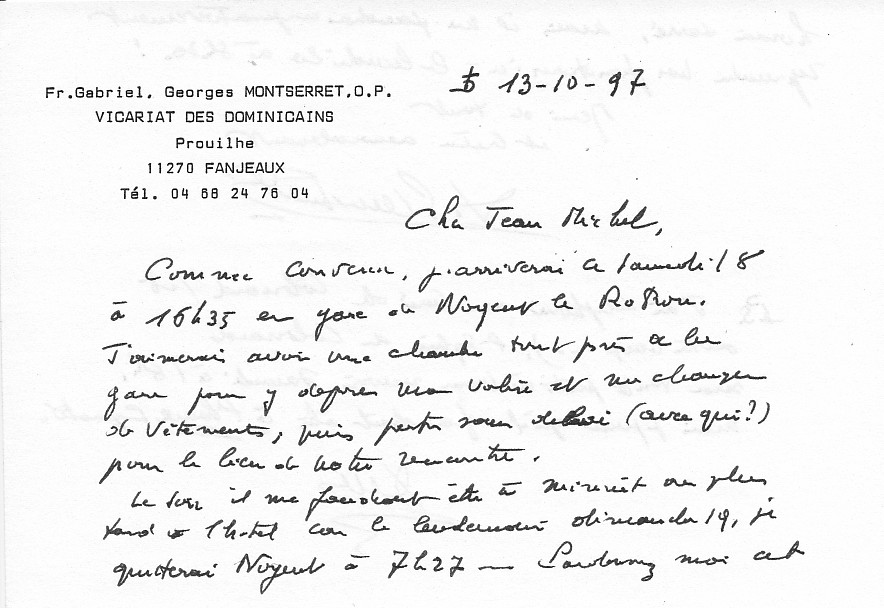 Fr.Gabriel, Georges MONTSERRET,O.P.
VICARIAT DES DOMINICAINS
Prouilhe
11270 FANJEAUX
Tél. 04 68 24 76 04
13-10-97
Cher Jean Michel,
Comme convenu, j'arriverai le samedi 18
à 16h35 en gare de Nogent le Rotrou.
J'aimerais avoir une chambre tout près de la
gare pour y déposer ma valise et me changer
de vêtements, puis partir sans délai (avec qui?)
pour le lieu de notre rencontre.
Le soir il me faudrait être à minuit au plus
tard à l'hôtel car le lendemain dimanche 19, je
quitterai Nogent à 7h27 — moi cet